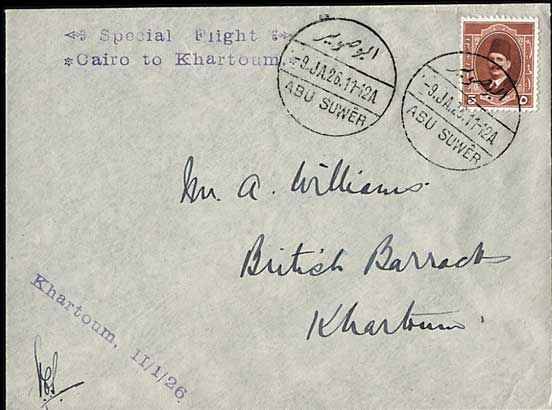 Special Flight
Cairo to Khartoum
ابو صوير
-9.JA.26.11-12A
ABU SUWÊR
ابو صوير
-9.JA.26.11-12A
ABU SUWÊR
5 ٥
Mr. A. Williams
British Barracks
Khartoum
Khartoum, 11/1/26.